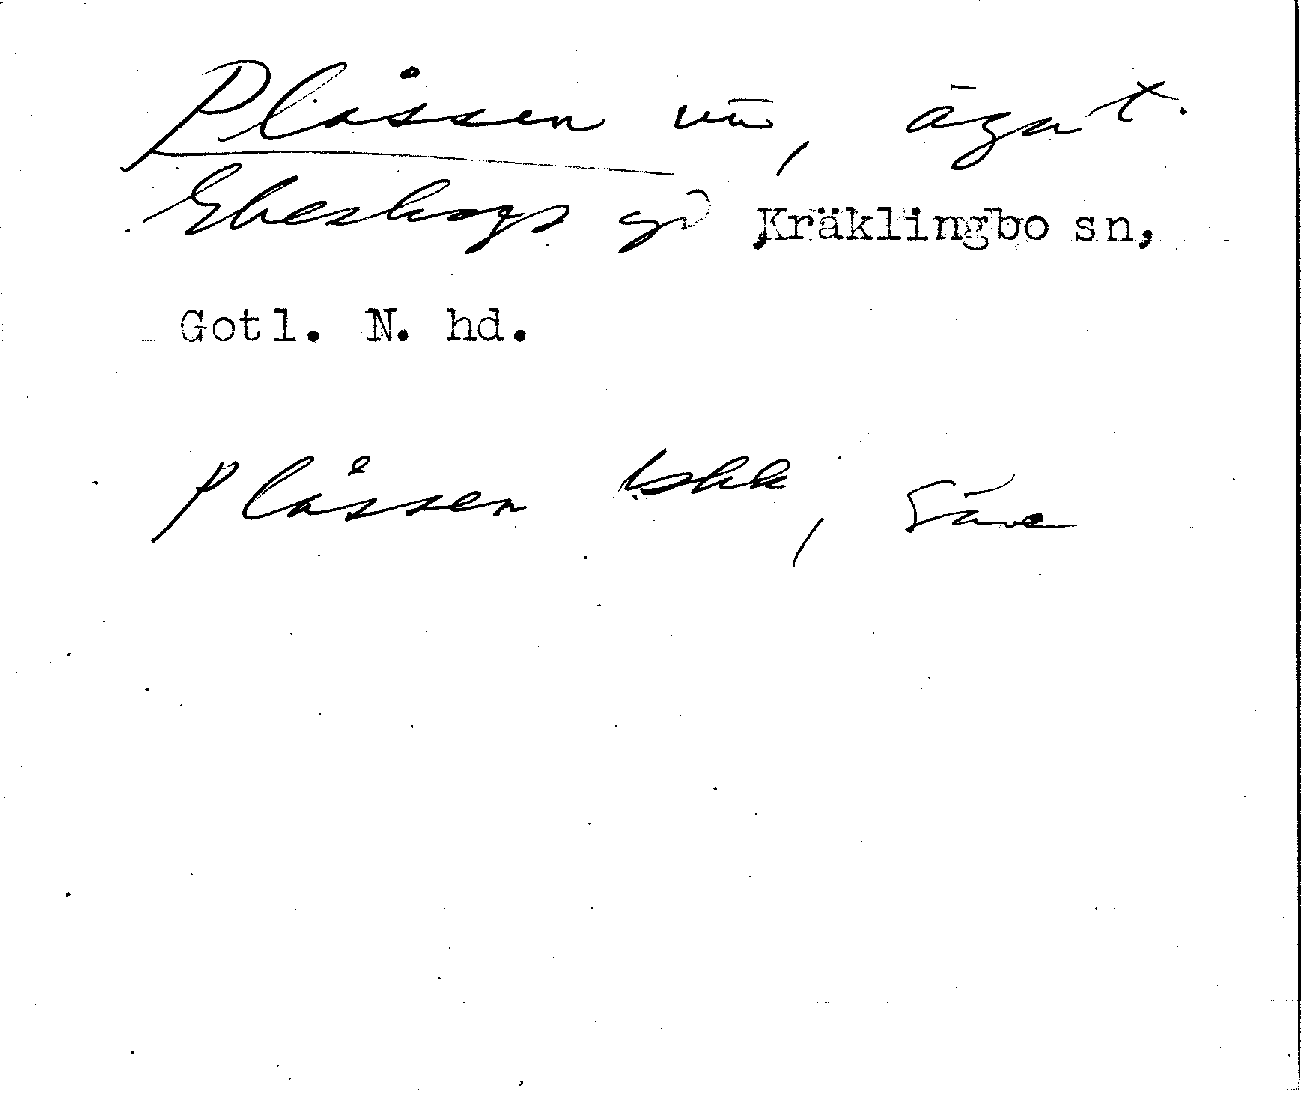 Plåssen , äga t.
Ekeskogs gd Kräklingbo sn,
Gotl. N. hd.
Plåssen , Säve